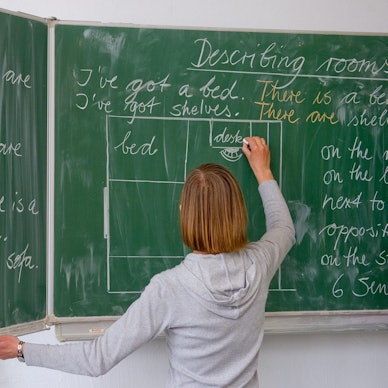 Describing rooms
are
I've got a bed. There is a be
I've got shelves. There are shel
bed
desk
are
on the
on the
e is a
next to
opposit
sofa.
on the s
6 Sen